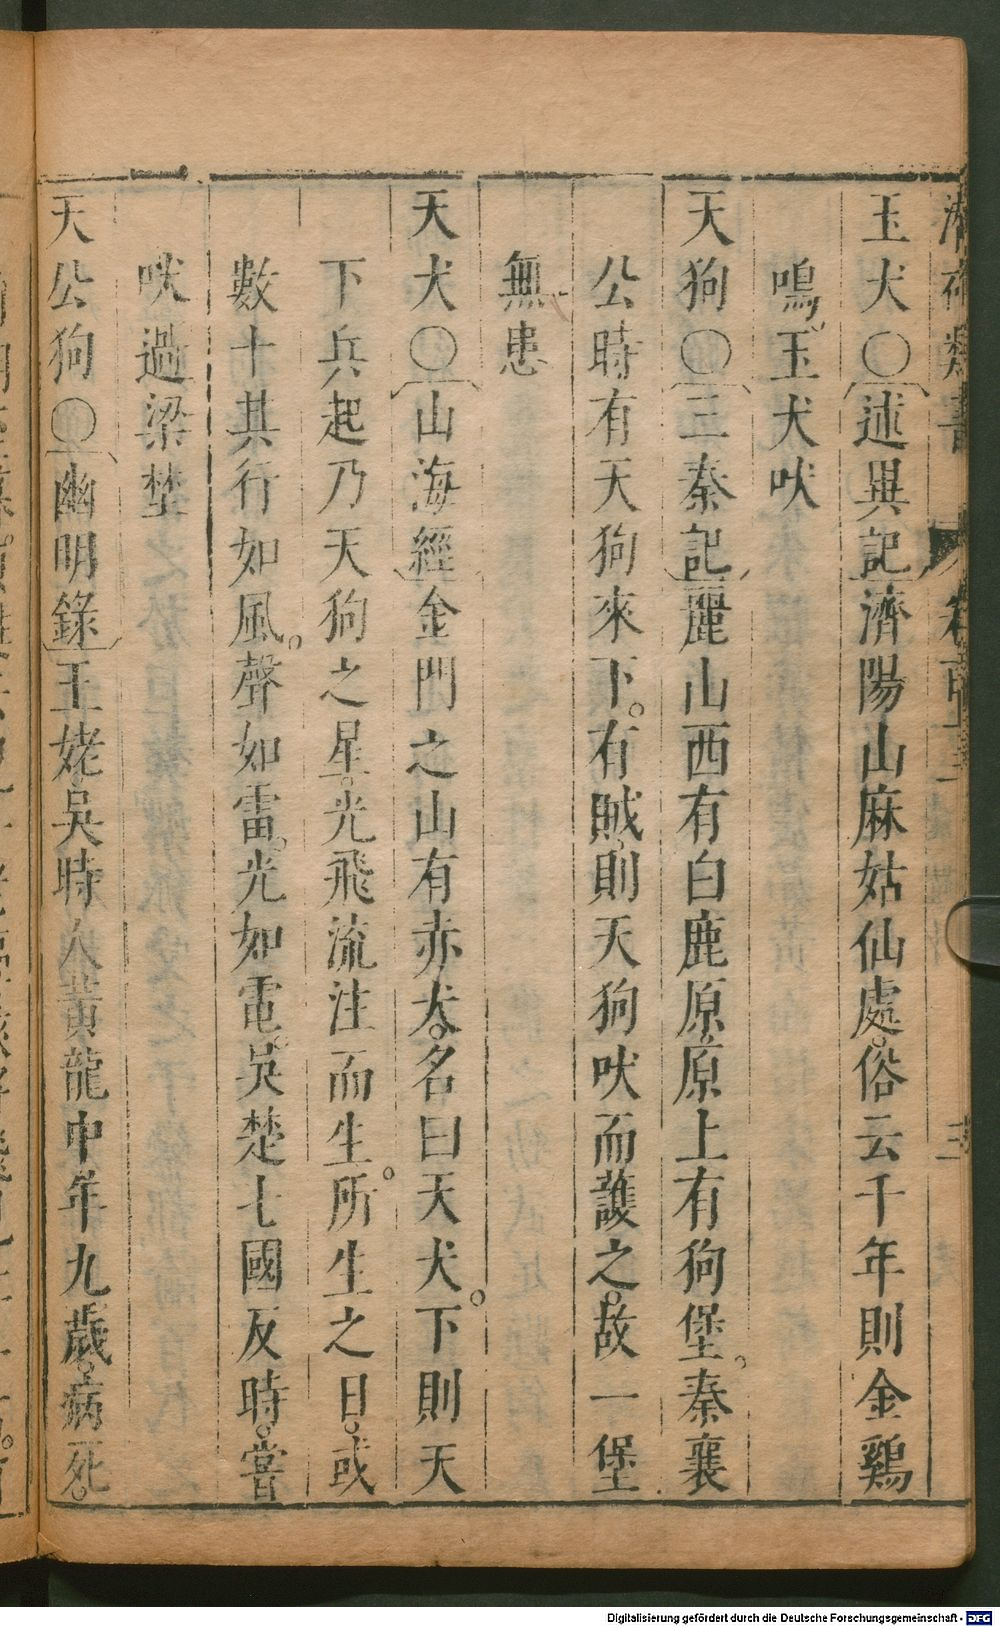 玉犬〇〔述異記〕濟陽山麻姑仙處。俗云千年則金鷄
鳴、玉犬吠
天狗〇〔三秦記〕麗山西有白鹿原。原上有狗堡。秦襄
公時有天狗來下。有賊則天狗吠而護之。故一堡
無患
天犬〇〔山海經〕金門之山有赤犬。名曰天犬。下則天
下兵起乃天狗之星。光飛流注而生。所生之日。或
數十其行如風。聲如雷。光如電。吳楚七國反時。嘗
吠過梁埜
天公狗〇〔幽明錄〕王姥吳時人黃龍中年九歲。病死。
Digitalisierung gefördert durch die Deutsche Forschungsgemeinschaft - DFG